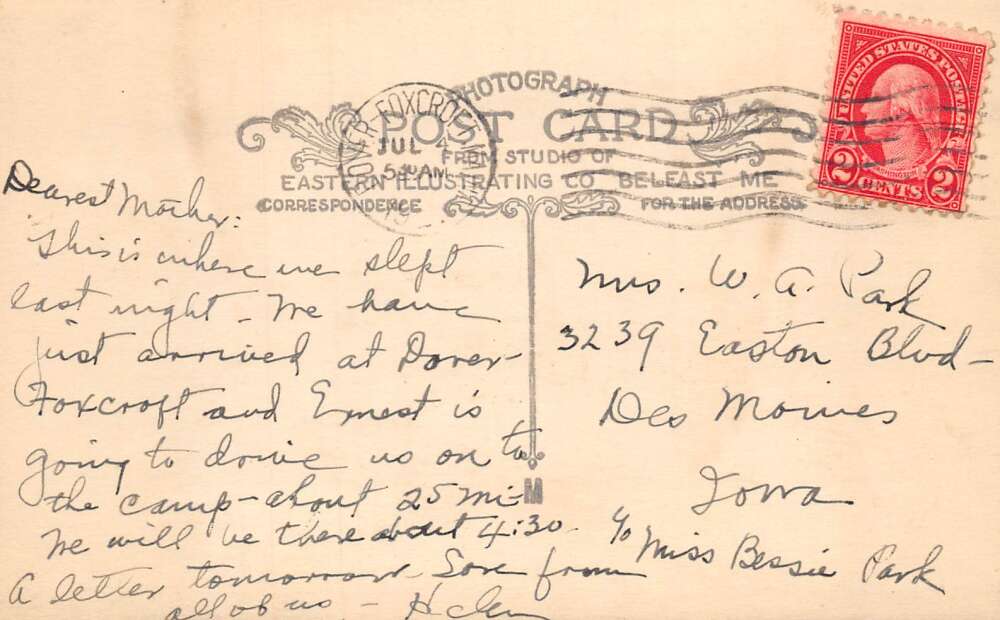 PHOTOGRAPH
POST CARD
FROM STUDIO OF
EASTERN ILLUSTRATING CO BELFAST ME
CORRESPONDENCE
FOR THE ADDRESS
DOVER-FOXCROFT
JUL 4
530 AM
UNITED STATES POSTAGE
WASHINGTON
2 CENTS 2
Dearest Mother:
This is where we slept
last night - We have
just arrived at Dover-
Foxcroft and Ernest is
going to drive us on to
the camp - about 25 mi -
We will be there about 4:30.
A letter tomorrow - Love from
all of us - Helen
M
Mrs. W. A. Park
3239 Easton Blvd -
Des Moines
Iowa
c/o Miss Bessie Park